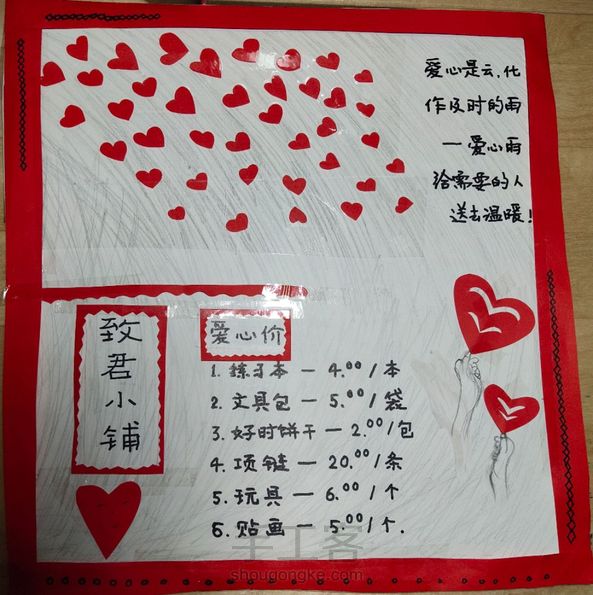 爱心是云,化
作及时的雨
一爱心雨
给需要的人
送去温暖!
致君小铺
爱心价
1. 练习本 — 4.00/本
2. 文具包 — 5.00/袋
3. 好时饼干 — 2.00/包
4. 项链 — 20.00/条
5. 玩具 — 6.00/个
6. 贴画 — 5.00/个.
手工客
shougongke.com